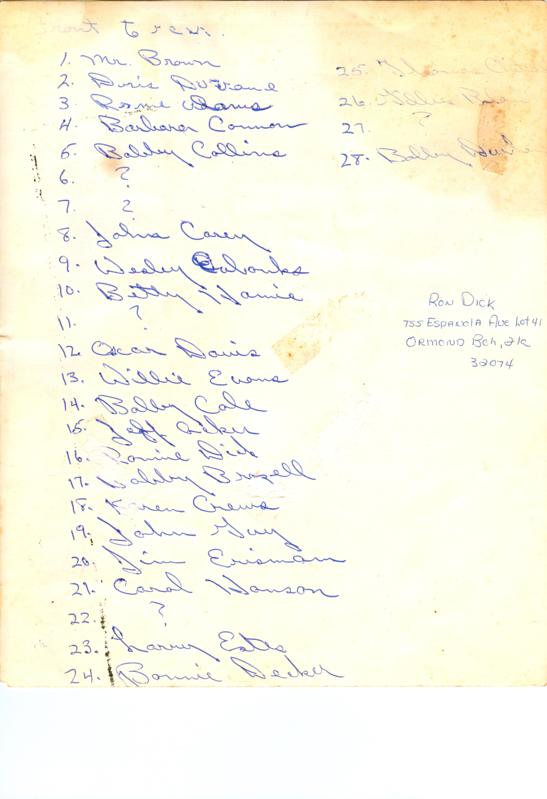 Front to rear:
1. Mr. Brown
2. Doris Dufrane
3. Ronnie Adams
4. Barbara Cannon
5. Bobby Collins
6. ?
7. ?
8. Johns Carey
9. Wesley Eubanks
10. Betty Hamic
11. ?
12. Oscar Davis
13. Willie Evans
14. Bobby Cole
15. Jeff
16. Ronnie Dick
17. Bobby Brazell
18. Karen Crews
19. John Guy
20. Jim Erisman
21. Carol Hanson
22. ?
23. Larry Estes
24. Bonnie Decker
25. Thomas
26.
27. ?
28. Bobby
Ron Dick
755 Espanola Ave Lot 41
Ormond Bch, Fla
32074